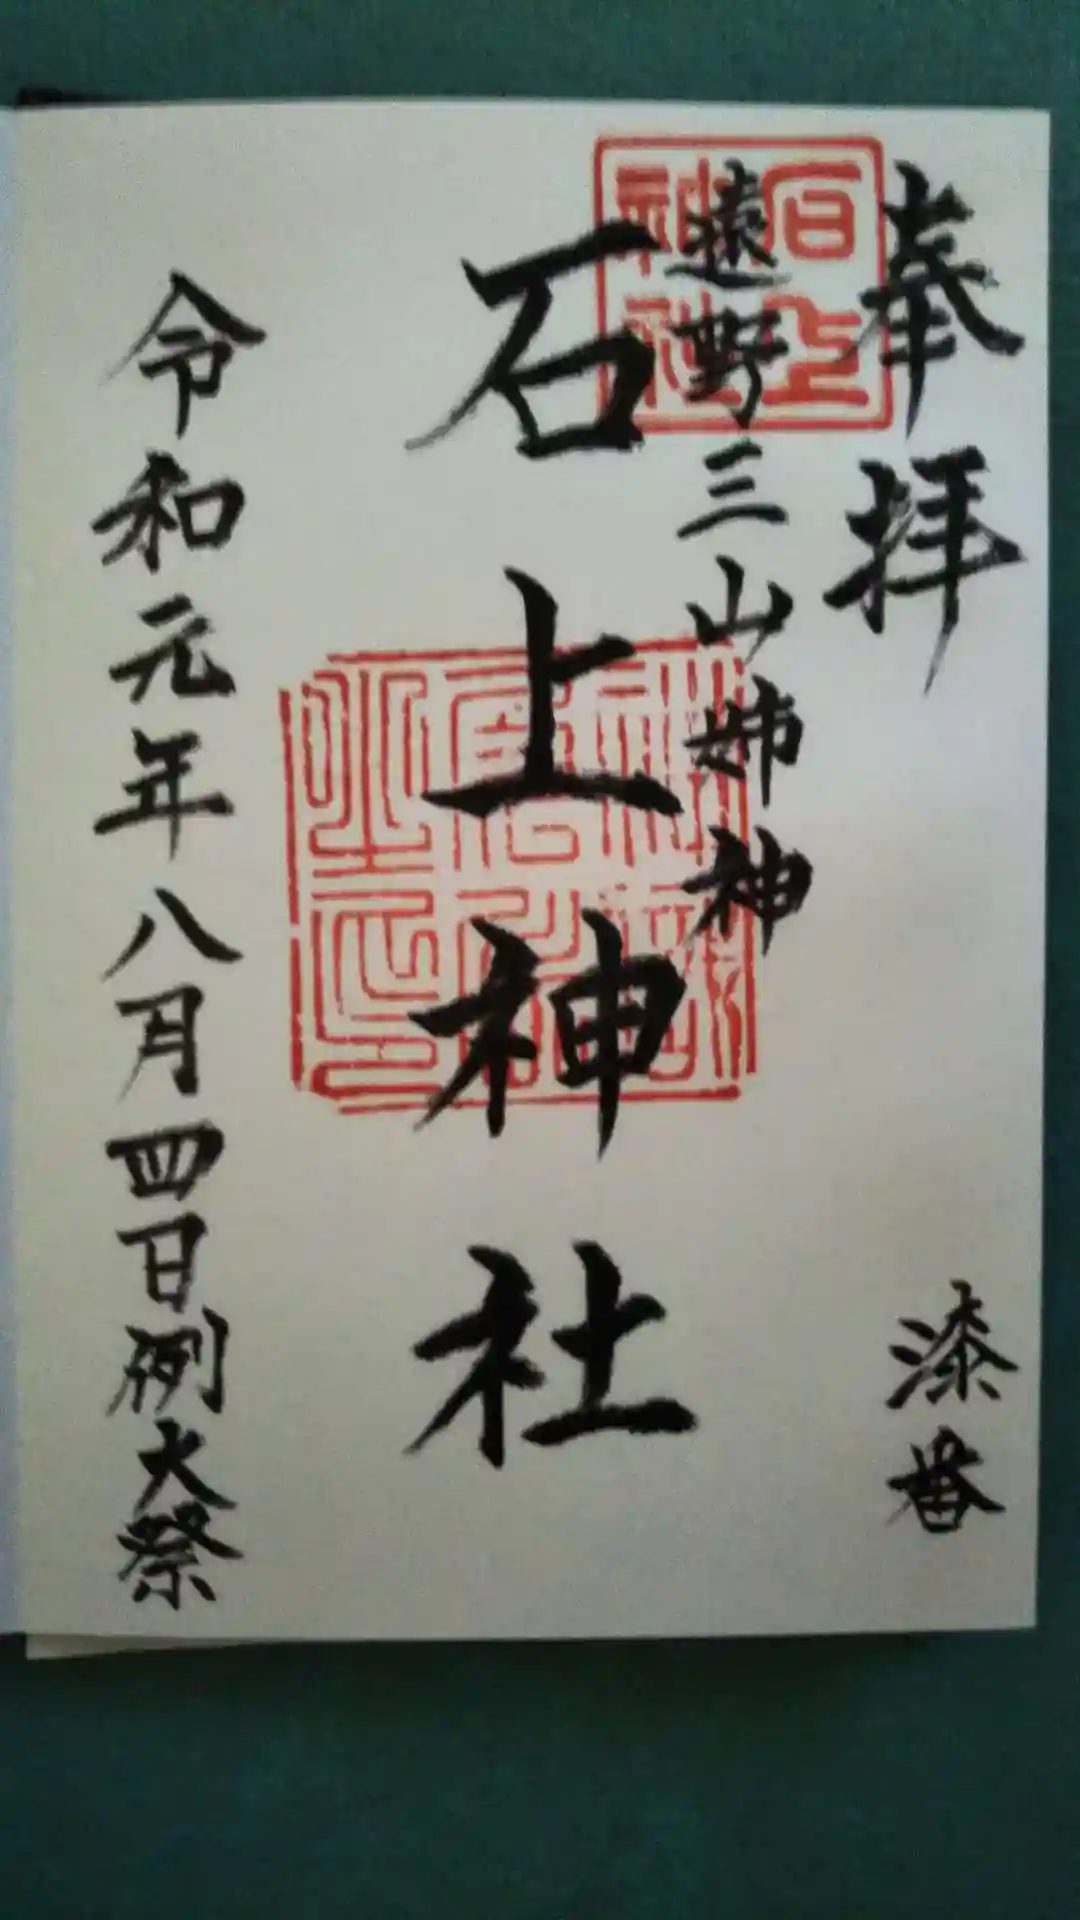 奉拝
漆番
遠野三山姉神
石上神社
令和元年八月四日例大祭
石上神社